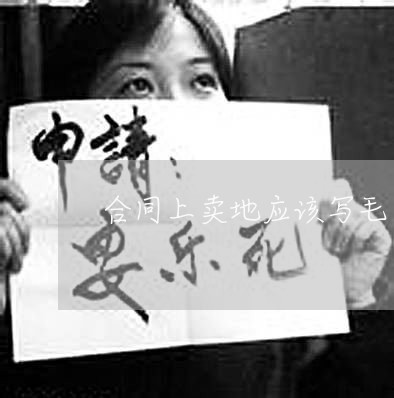 申請：
合同上卖地应该写毛
安乐死